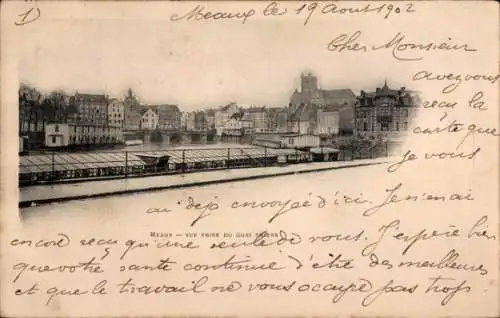 Meaux le 19 Août 1902
Cher Monsieur
avez vous
reçu la
carte que
je vous
ai déjà envoyé d'ici. Je n'en ai
MEAUX — VUE PRISE DU QUAI THIERS
encore reçu qu'une seule de vous. J'espère
que votre santé continue d'être des meilleures
et que le travail ne vous occupe pas trop.